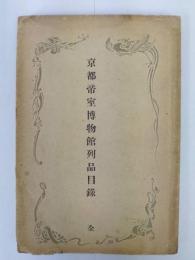 京都帝室博物館列品目録
全